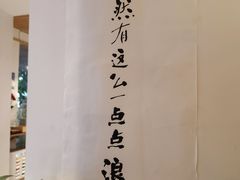 然有这么一点点浪